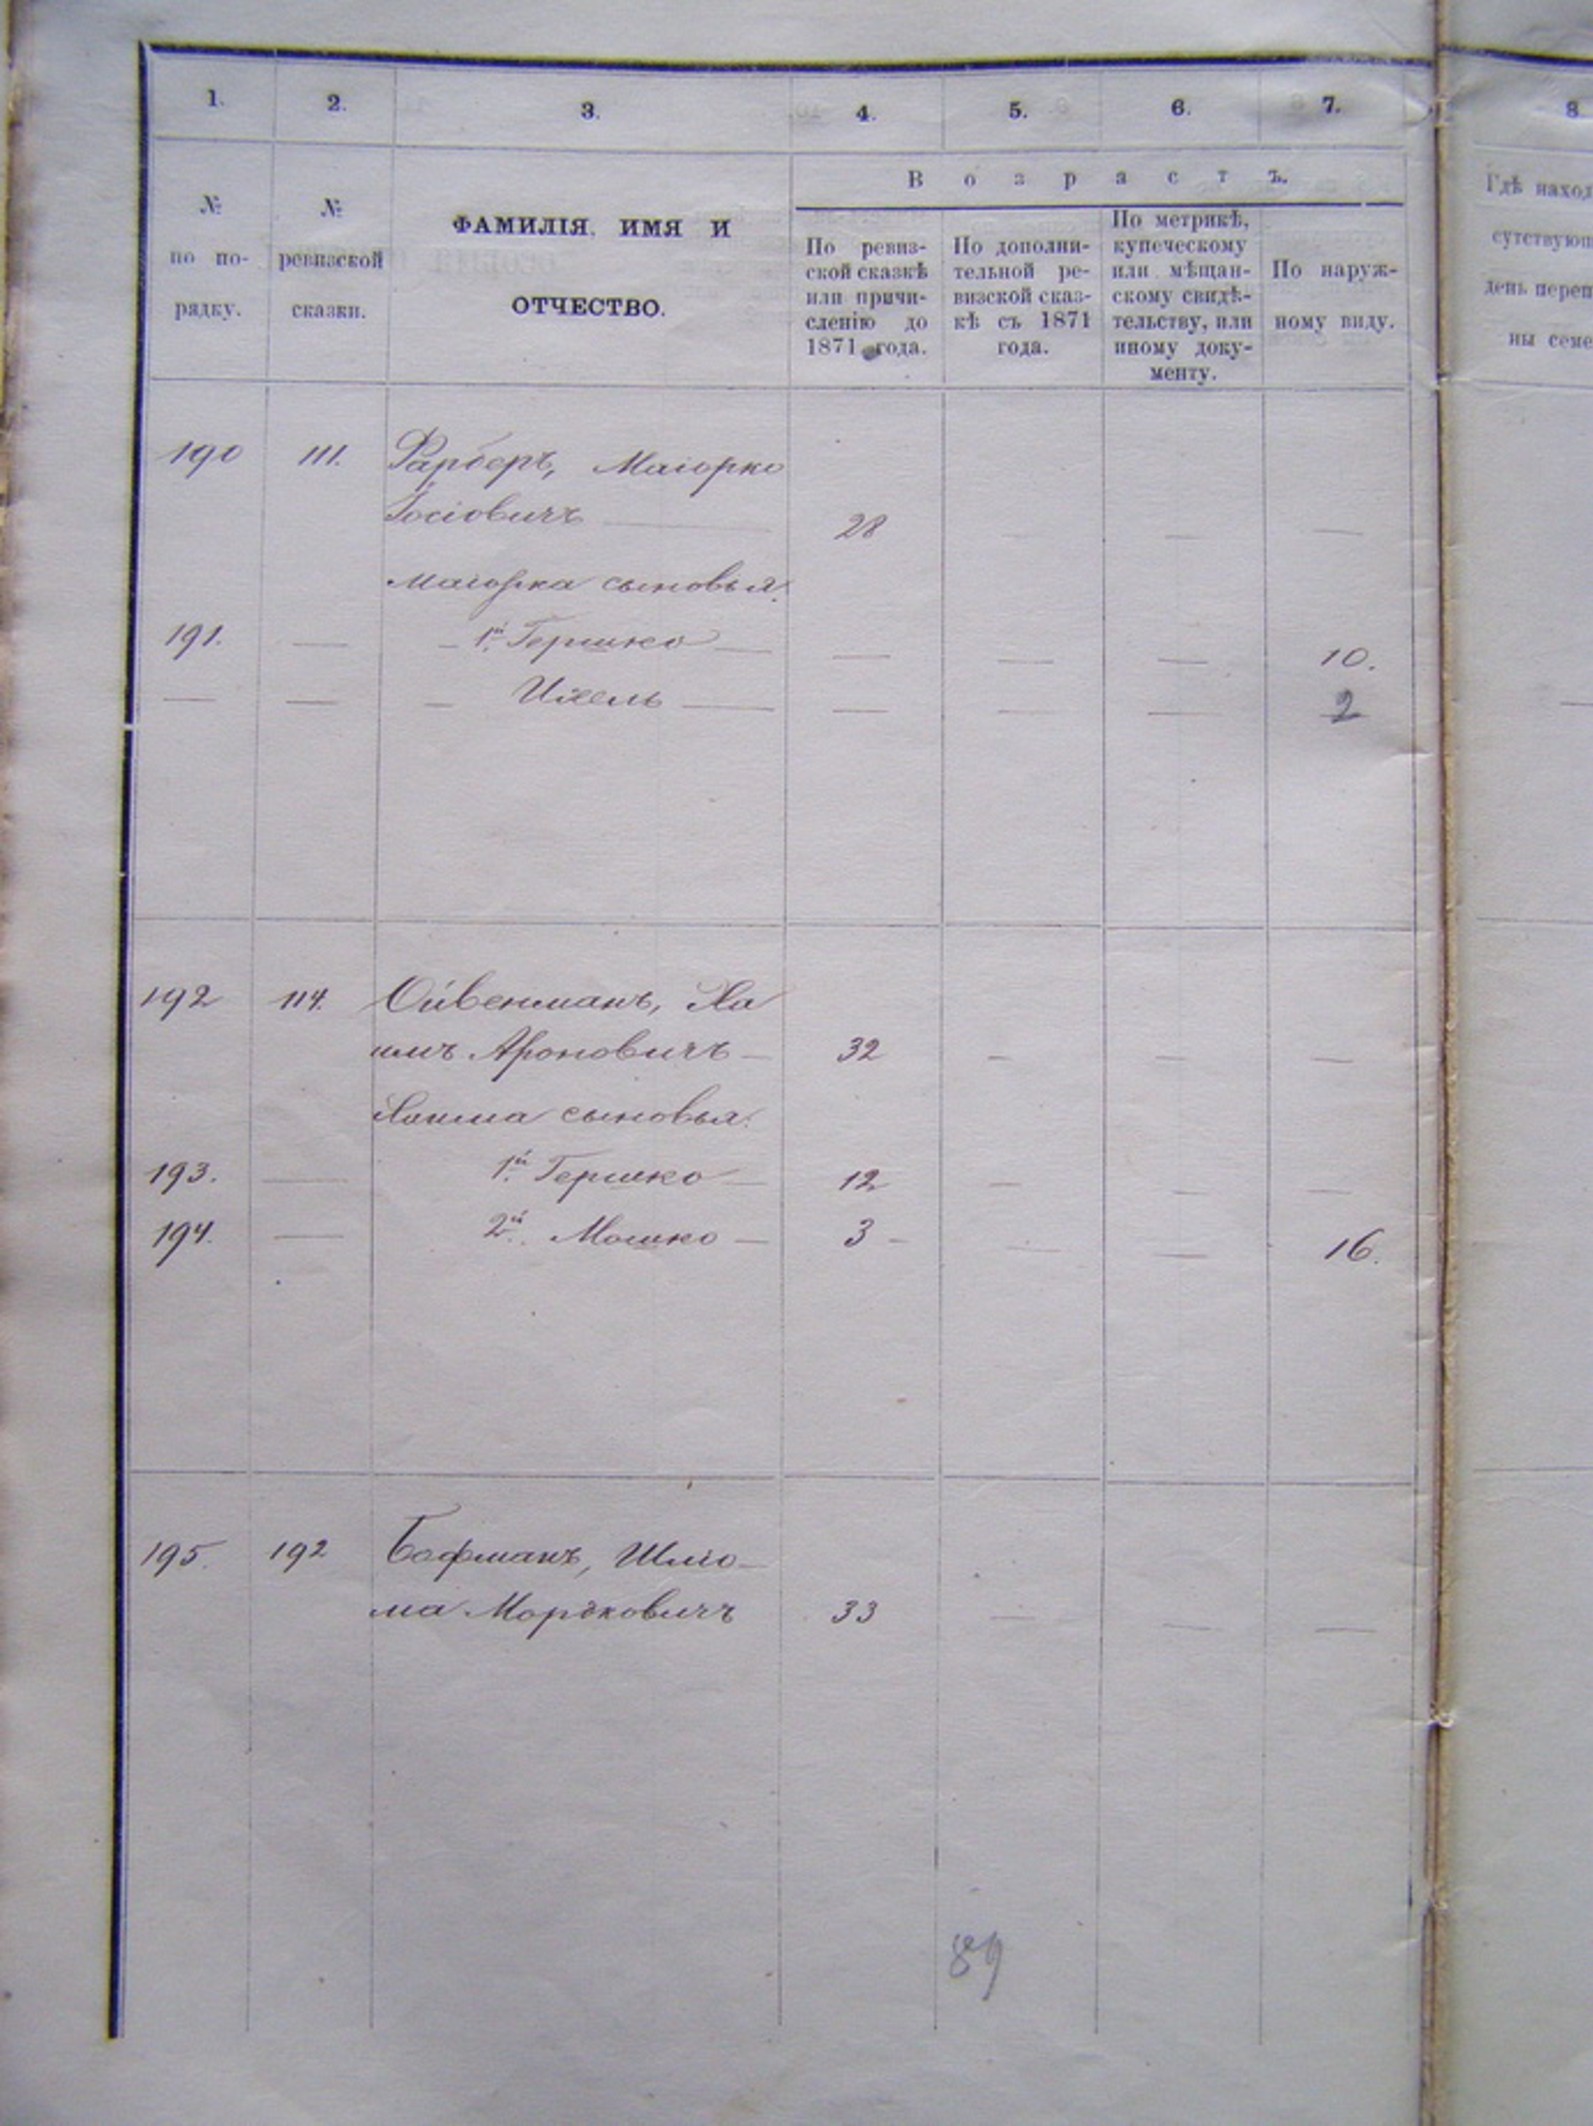 1. 2. 3. 4. 5. 6. 7. 8
№ по по- рядку.
№ ревизской сказки.
ФАМИЛІЯ, ИМЯ И
ОТЧЕСТВО.
Возрастъ.
По ревиз-
ской сказкѣ
или причи-
сленію до
1871 года.
По дополни-
тельной ре-
визской сказ-
кѣ съ 1871
года.
По метрикѣ,
купеческому
или мѣщан-
скому свидѣ-
тельству, или
иному доку-
менту.
По наруж-
ному виду.
Гдѣ наход
сутствующ
день переп
ны семе
190 111. Фарберъ, Маіорко
Іосіовичъ — 28 — — —
Маіорка сыновья:
191. — — 1й Гершко — — — — 10.
— — — Ихель — — — — 2
192 114. Ойвенманъ, Ха
имъ Ароновичъ — 32 — — —
Хаима сыновья:
193. — 1й Гершко — 12 — — —
194. — 2й Мошко — 3 — — — 16.
195. 192 Бофманъ, Шліо-
ма Мордковичъ 33 — — —
89